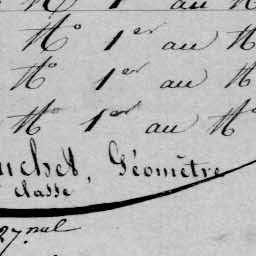 N° 1er au N°
N° 1er au N°
N° 1er au N°
N° 1er au N°
Géomètre
classe